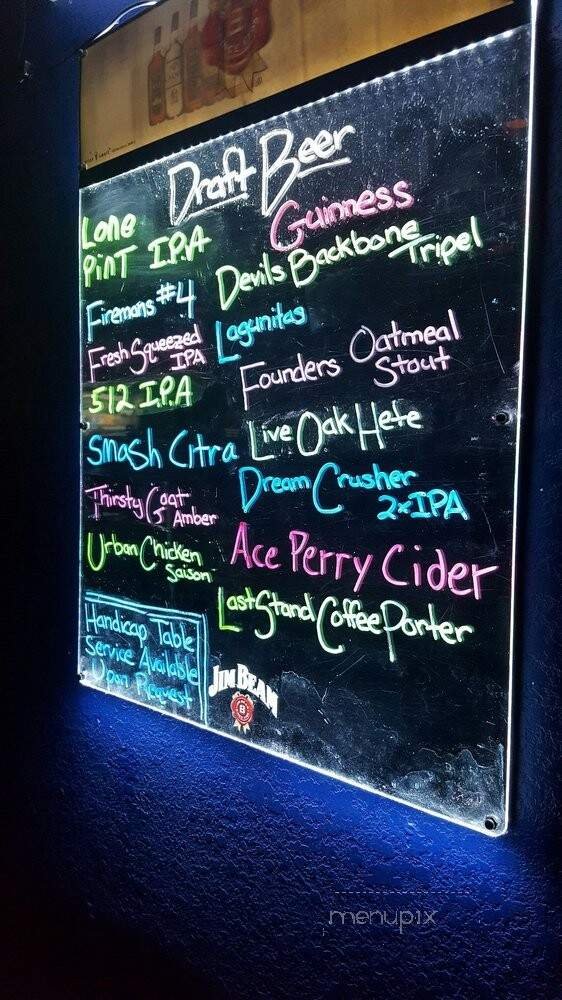 Draft Beer
Lone
Pint I.P.A
Firemans #4
Fresh Squeezed
IPA
512 I.P.A
Smash Citra
Thirsty Goat
Amber
Urban Chicken
Saison
Handicap Table
Service Available
Upon Request
Guinness
Devils Backbone
Tripel
Lagunitas
Founders Oatmeal
Stout
Live Oak Hefe
Dream Crusher
2xIPA
Ace Perry Cider
Last Stand Coffee Porter
JIM BEAM
B
menupix